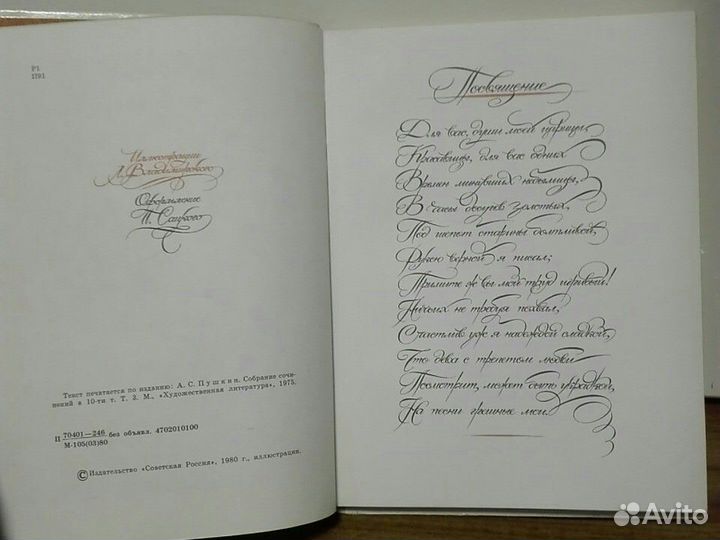 Р1
П91
Иллюстрации
Л. Владимирского
Оформление
П. Сацкого
Текст печатается по изданию: А. С. Пушкин. Собрание сочи-
нений в 10-ти т. Т. 3. М., «Художественная литература», 1975.
П 70401—246 без объявл. 4702010100
М-105(03)80
© Издательство «Советская Россия», 1980 г., иллюстрации.
Посвящение
Для вас, души моей царицы,
Красавицы, для вас одних
Времен минувших небылицы,
В часы досугов золотых,
Под шепот старины болтливой,
Рукою верной я писал;
Примите ж вы мой труд игривый!
Ничьих не требуя похвал,
Счастлив уж я надеждой сладкой,
Что дева с трепетом любви
Посмотрит, может быть украдкой,
На песни грешные мои.
Avito